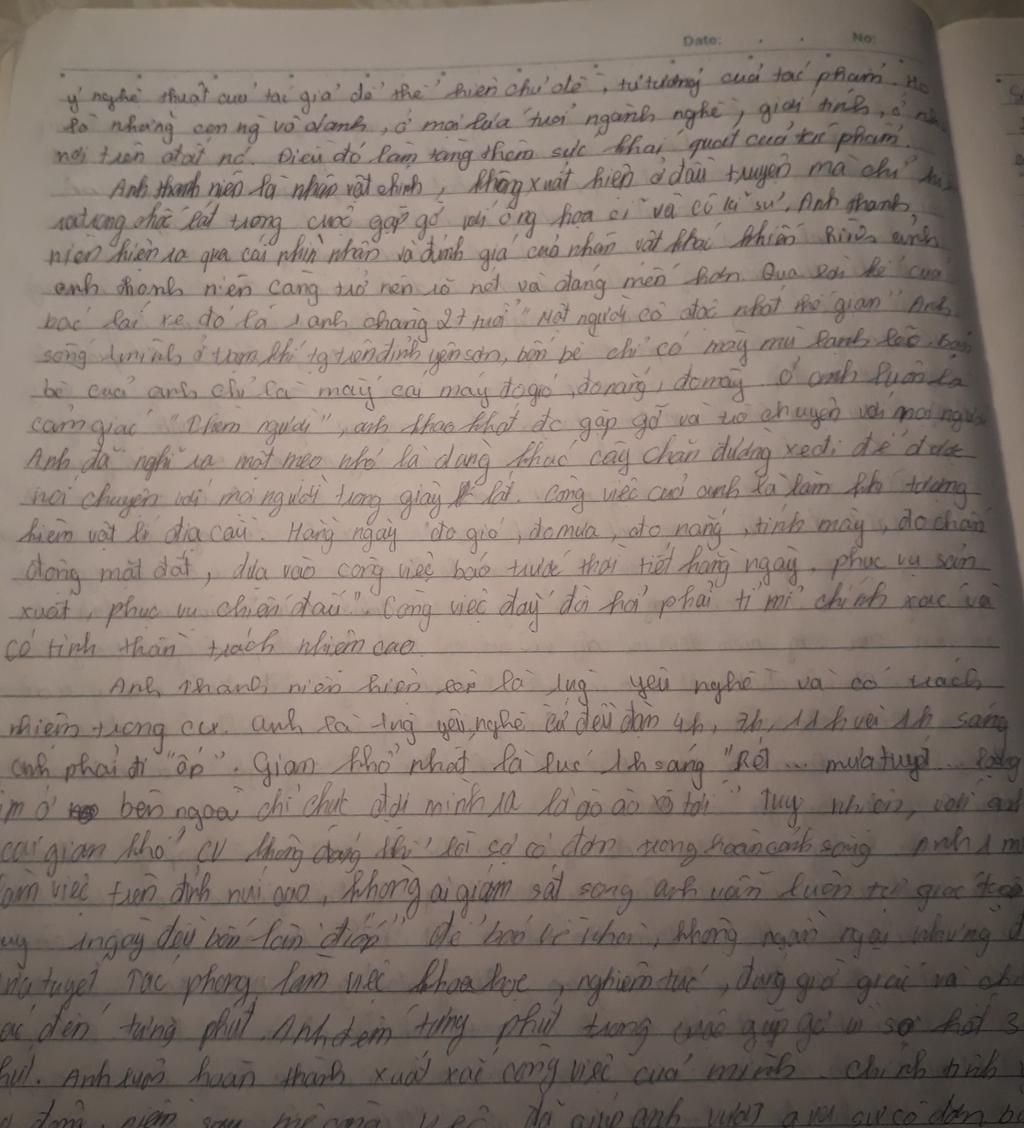 Date: No:
ý nghệ thuật của tác giả để thể hiện chủ đề, tư tưởng của tác phẩm. Họ
là những con ng vô danh, ở mọi lứa tuổi ngành nghề, giới tính, ở
nơi trên đất nc. Điều đó làm tăng thêm sức khái quát của tác phẩm.
Anh thanh niên là nhân vật chính, không xuất hiện ở đầu truyện mà chỉ
trong chốc lát trong cuộc gặp gỡ với ông họa sĩ và cô kĩ sư. Anh thanh
niên hiện ra qua cái nhìn nhận và đánh giá của nhân vật khác khiến hình ảnh
anh thanh niên càng trở nên rõ nét và đáng mến hơn. Qua lời kể của
bác lái xe đó là 1 anh chàng 27 tuổi "Một người cô độc nhất thế gian" Anh
sống 1 mình ở trạm khí tg trên đỉnh yên sơn, bốn bề chỉ có mây mù lạnh lẽo. bạn
bè của anh chỉ là mấy cái máy đo gió, đo nắng, đo mây. Ở anh luôn là
cảm giác "thèm người", anh khao khát đc gặp gỡ và trò chuyện với mọi người
Anh đã nghĩ ra một mẹo nhỏ là dùng khúc cây chắn đường xe đi để được
nói chuyện với mọi người trong giây lát. Công việc của anh là làm khí tượng
kiêm vật lí địa cầu. Hàng ngày "đo gió, đo mưa, đo nắng, tính mây, đo chấn
động mặt đất, dựa vào công việc báo trước thời tiết hằng ngày. phục vụ sản
xuất, phục vụ chiến đấu". Công việc đấy đòi hỏi phải tỉ mỉ chính xác và
có tinh thần trách nhiệm cao.
Anh thanh niên hiện là 1 ng yêu nghề và có trách
nhiệm trong cv. anh là 1 ng yêu nghề cứ đều đặn 4h, 7h, 11h với 1h sáng
anh phải đi "ốp". Gian khổ nhất là lúc 1h sáng "Rét ... mưa tuyết ...
im ở bên ngoài chỉ chực đợi mình ra là ào ào xô tới" Tuy nhiên, với anh
cái gian khổ cv không đáng là sợ cô đơn trong hoàn cảnh sống Anh 1 m
làm việc trên đỉnh núi cao, không ai giám sát song anh vẫn luôn tự giác
1 ngày đều bốn lần để báo về nhà, không ngần ngại những
tuyết Tác phong làm việc khoa học, nghiêm túc, đúng giờ giấc và
đến từng phút. Anh đếm từng phút trong cuộc gặp gỡ vì sợ hết 3
hút. Anh luôn hoàn thành xuất xắc công việc của mình. Chính tình
đã giúp anh vượt qua sự cô đơn